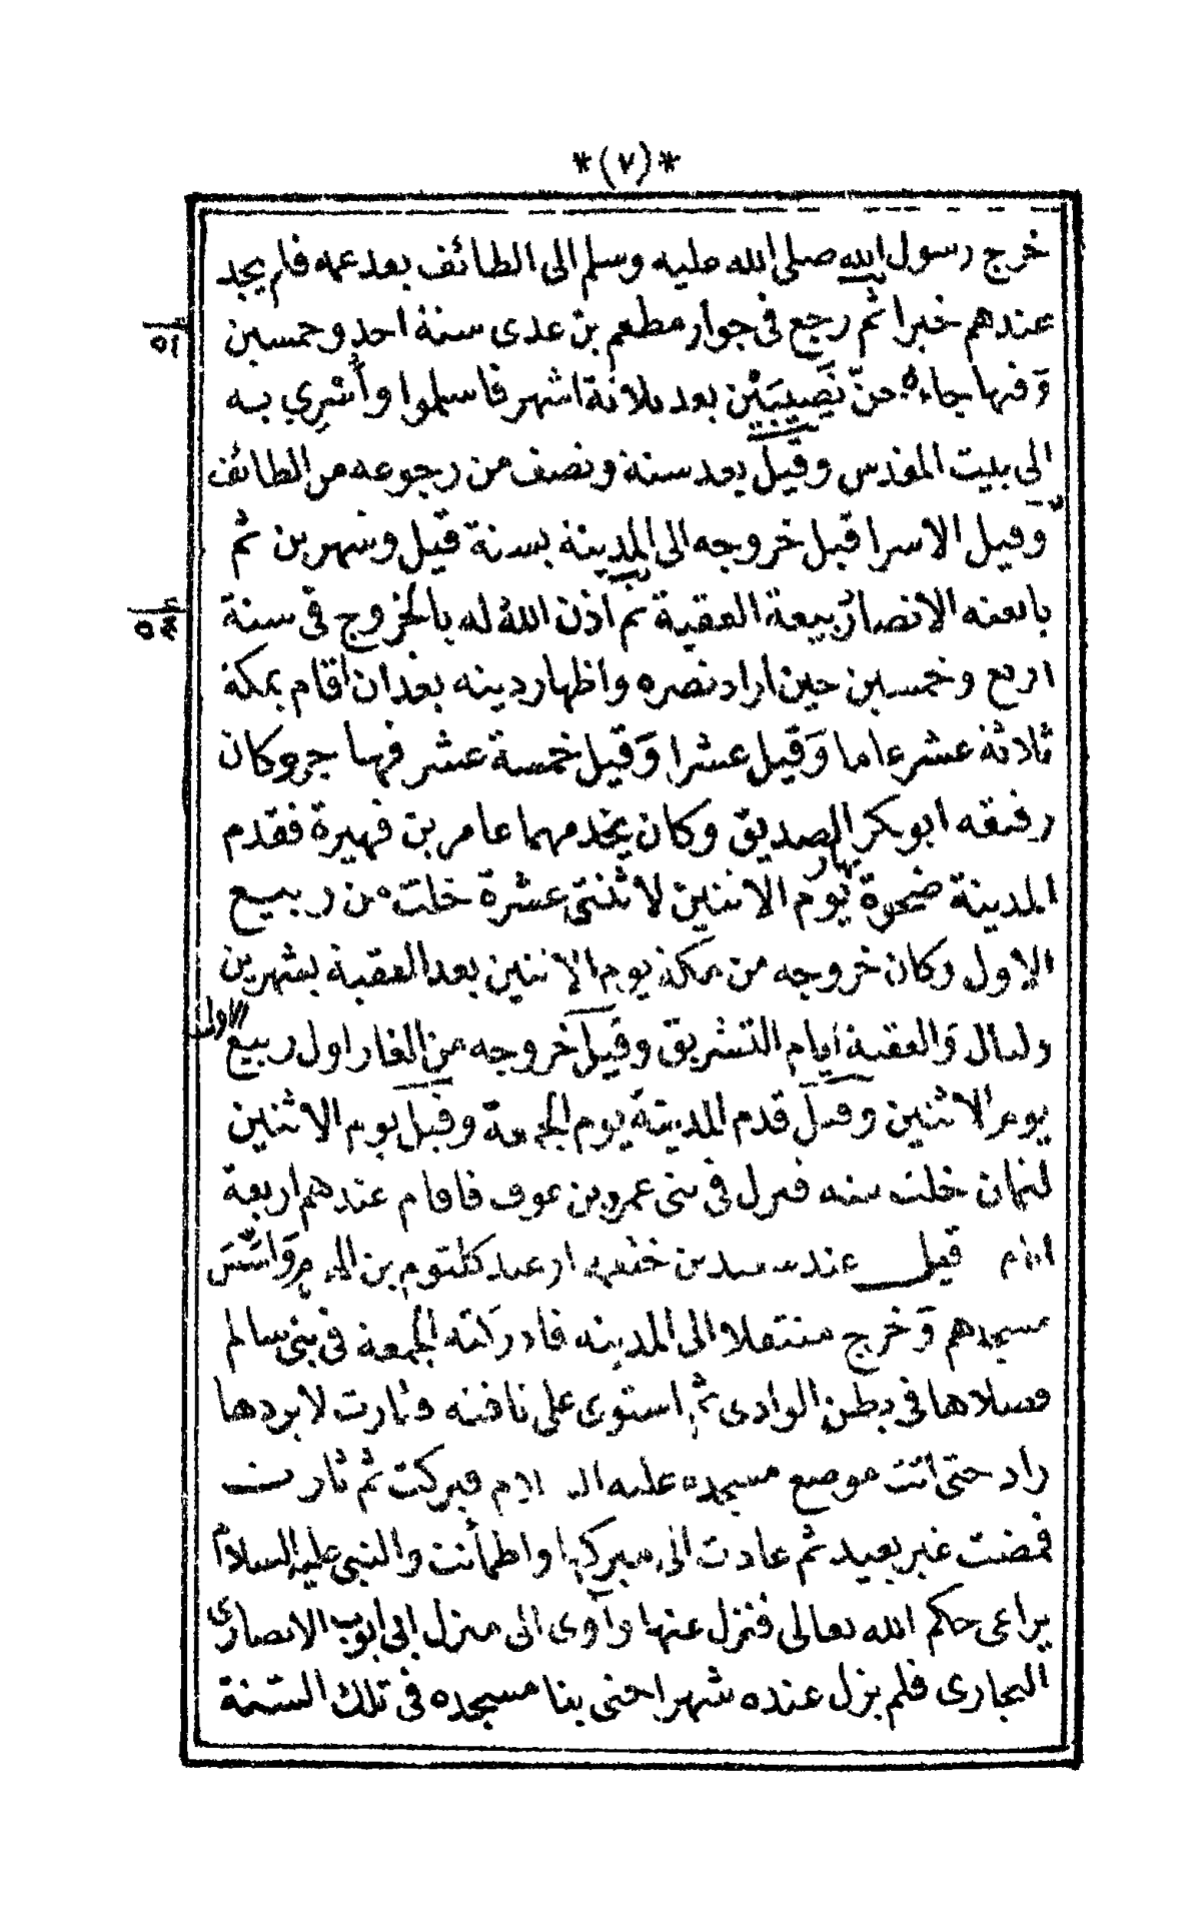 *(٧)*
خرج رسول الله صلى الله عليه وسلم الى الطائف بعد عمه فلم يجد
عندهم خيرا ثم رجع فى جوار مطعم بن عدى سنة احد وخمسين
٥١
وفيها جاءه جن نصيبين بعد ثلاثة اشهر فاسلموا وأسري به
الى بيت المقدس وقيل بعد سنة ونصف من رجوعه من الطائف
وقيل الاسرا قبل خروجه الى المدينة بسنة قيل وشهرين ثم
بايعته الانصار بيعة العقبة ثم اذن الله له بالخروج فى سنة
٥٤
اربع وخمسين حين اراد نصره واظهار دينه بعد ان اقام بمكة
ثلاثة عشر عاما وقيل عشرا وقيل خمسة عشر فيها وكان
رفيقه ابو بكر الصديق وكان يخدمهما عامر بن فهيرة فقدم
المدينة ضحوة نهار يوم الاثنين لاثنتى عشرة خلت من ربيع
الاول وكان خروجه من مكة يوم الاثنين بعد العقبة بشهرين
وليال والعقبة ايام التشريق وقيل خروجه من الغار اول ربيع الاول
يوم الاثنين وقيل قدم المدينة يوم الجمعة وقيل يوم الاثنين
لثمان خلت منه فنزل فى بنى عمرو بن عوف فاقام عندهم اربعة
ايام قيل عند سعد بن خثيمة او عند كلثوم بن الهدم واسس
مسجدهم وخرج منتقلا الى المدينه فادركته الجمعة فى بنى سالم
فصلاها فى بطن الوادى ثم استوى على ناقته وثارت لا يردها
راد حتى اتت موضع مسجده عليه السلام فبركت ثم ثارت
فمضت غير بعيد ثم عادت الى مبركها واطمأنت والنبى عليه السلام
يراعى حكم الله تعالى فنزل عنها وآوى الى منزل ابى ايوب الانصارى
النجارى فلم يزل عنده شهرا حتى بنا مسجده فى تلك السنة